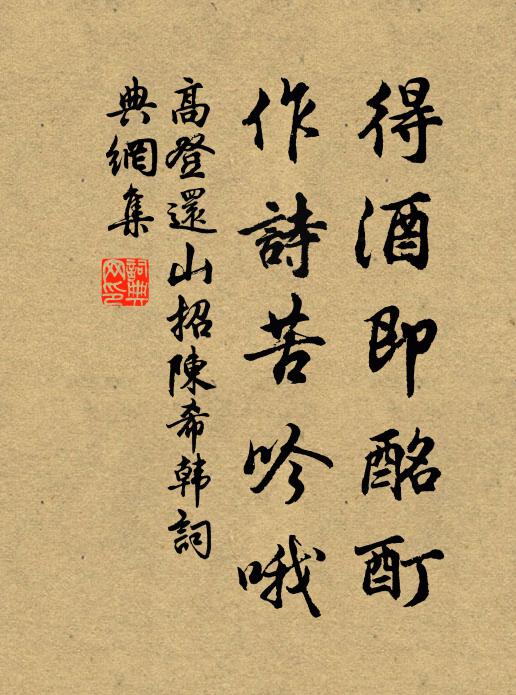 得酒即酩酊
作詩苦吟哦
高登還山招陳希韩詞
典網集
詞典
网印